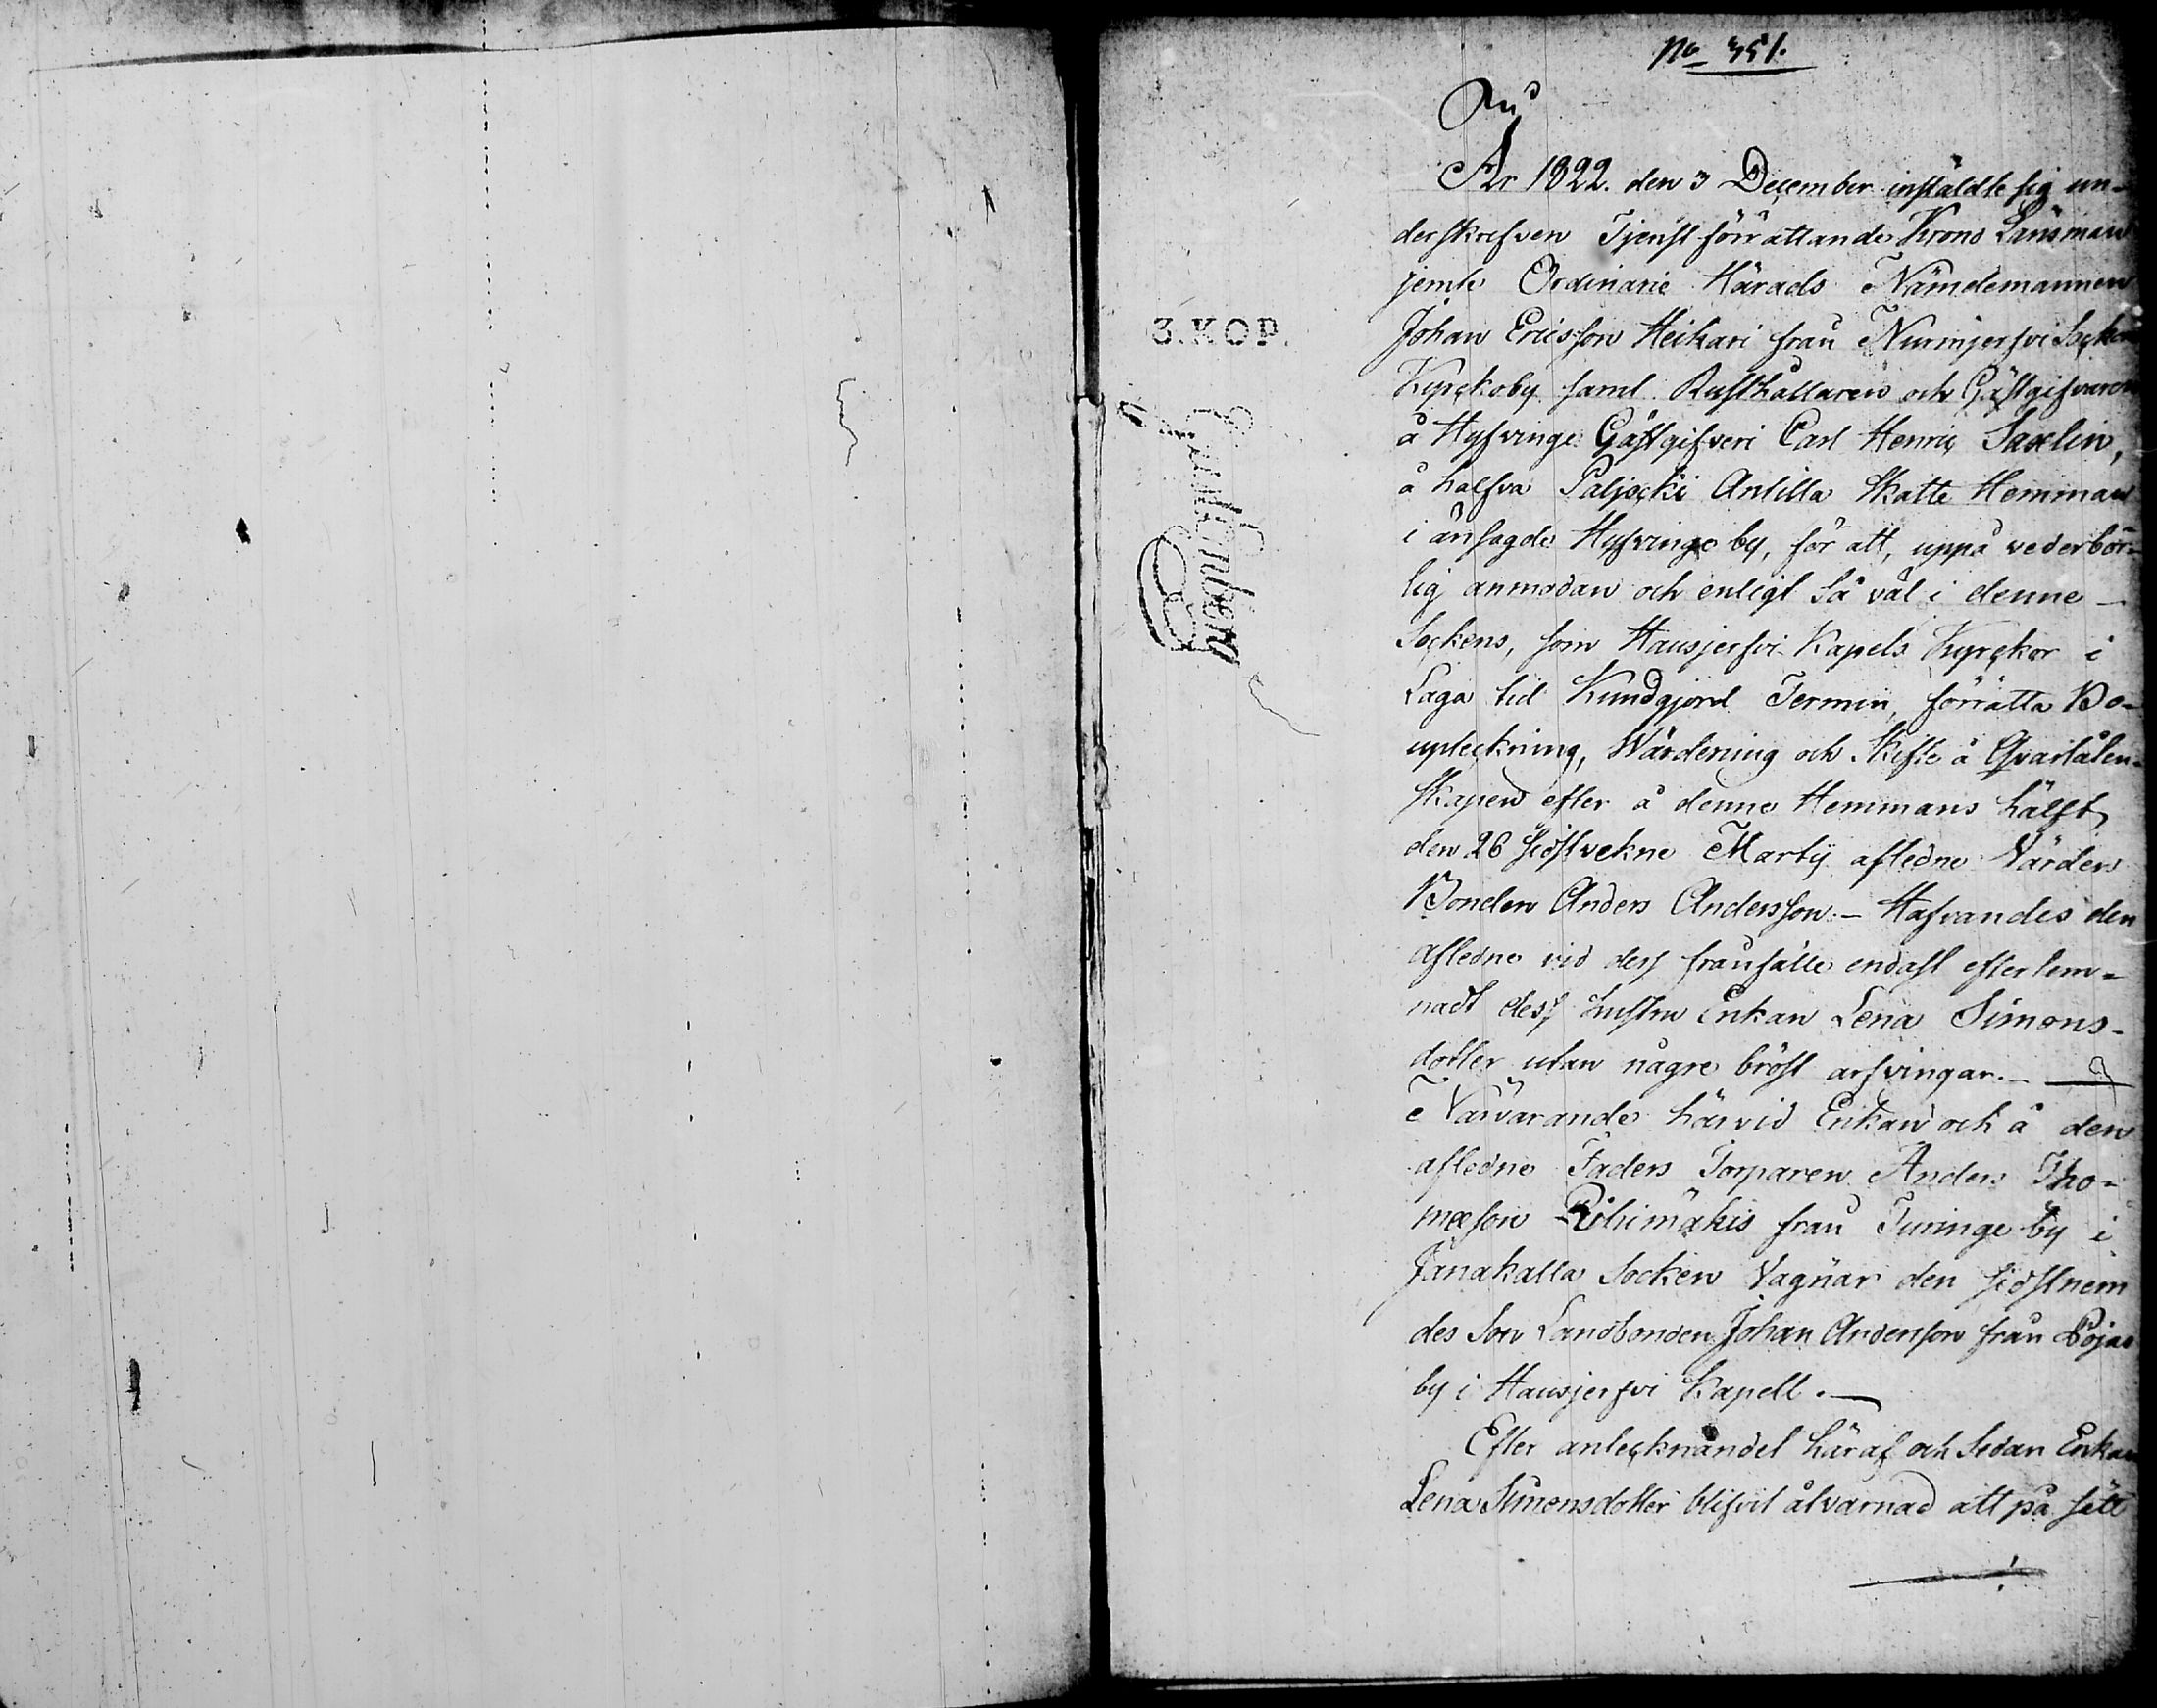 No 351.
År 1822. den 3 December instäldte sig un-
derskrefven Tjenst förrättande Krono Länsman
jemte Ordinarie Härads Nämdemannen
Johan Ericsson Heikari från Nurmjerfvi Socken
Kyrckoby samt Rusthållaren och Gästgifvaren
å Hyfvinge Gästgifveri Carl Henric Saxelin,
å halfva Paljocki Antilla Skatte Hemman
i ånsagde Hyfvinge by, för att, uppå vederbör-
lig anmodan och enligt så väl i denne -
Sockens, som Hausjerfvi Kapels Kyrckor i
Laga tid Kundgjord Termin, förrätta Bo-
upteckning, Wärdering och Skifte å Qvarlåten-
skapen efter å denne Hemmans hälft
den 26 sidstvekne Martÿ afledne Värden
Bonden Anders Andersson. - Hafvandes den
afledne vid dess frånfälle endast efterlem-
nadt dess hustru Enkan Lena Simons-
dotter utan någre bröst arfvingar. -
Närvarande härvid Enkan och å den
afledne Faders Torparen Anders Tho-
mæson Rihimäkis från Turinge by i
Janakalla Socken Vägnar den sidstnem
des Son Landbonden Johan Andersson från
by i Hausjerfvi Kapell. -
Efter antecknandet häraf och Sedan Enkan
Lena Simonsdotter blifvit åtvarnad att på sätt
3. KOP.